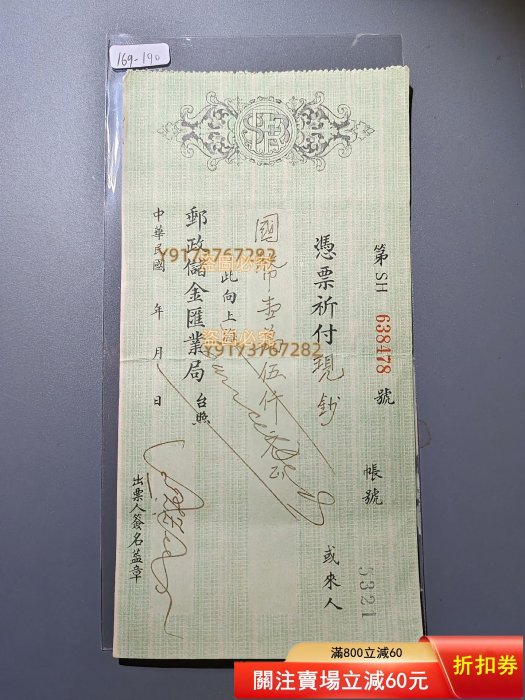 169-190
第SH 638478 號
帳號
5321
憑票祈付現鈔
或來人
國幣壹萬伍仟元正
此向上海
郵政儲金匯業局 台照
中華民國 年 月 日
出票人簽名蓋章
盜圖必究
Y9173767282
盜圖必究
Y9173767282
滿800立減60
關注賣場立減60元
折扣券